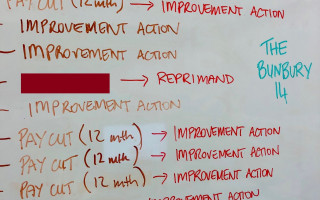 PAY CUT (12 mth) → IMPROVEMENT ACTION
IMPROVEMENT ACTION
- IMPROVEMENT ACTION
- → REPRIMAND
- IMPROVEMENT ACTION
- PAY CUT (12 mth) → IMPROVEMENT ACTION
- PAY CUT (12 mth) → IMPROVEMENT ACTION
- PAY CUT (12 mth) → IMPROVEMENT ACTION
IMPROVEMENT ACTION
THE
BUNBURY
14